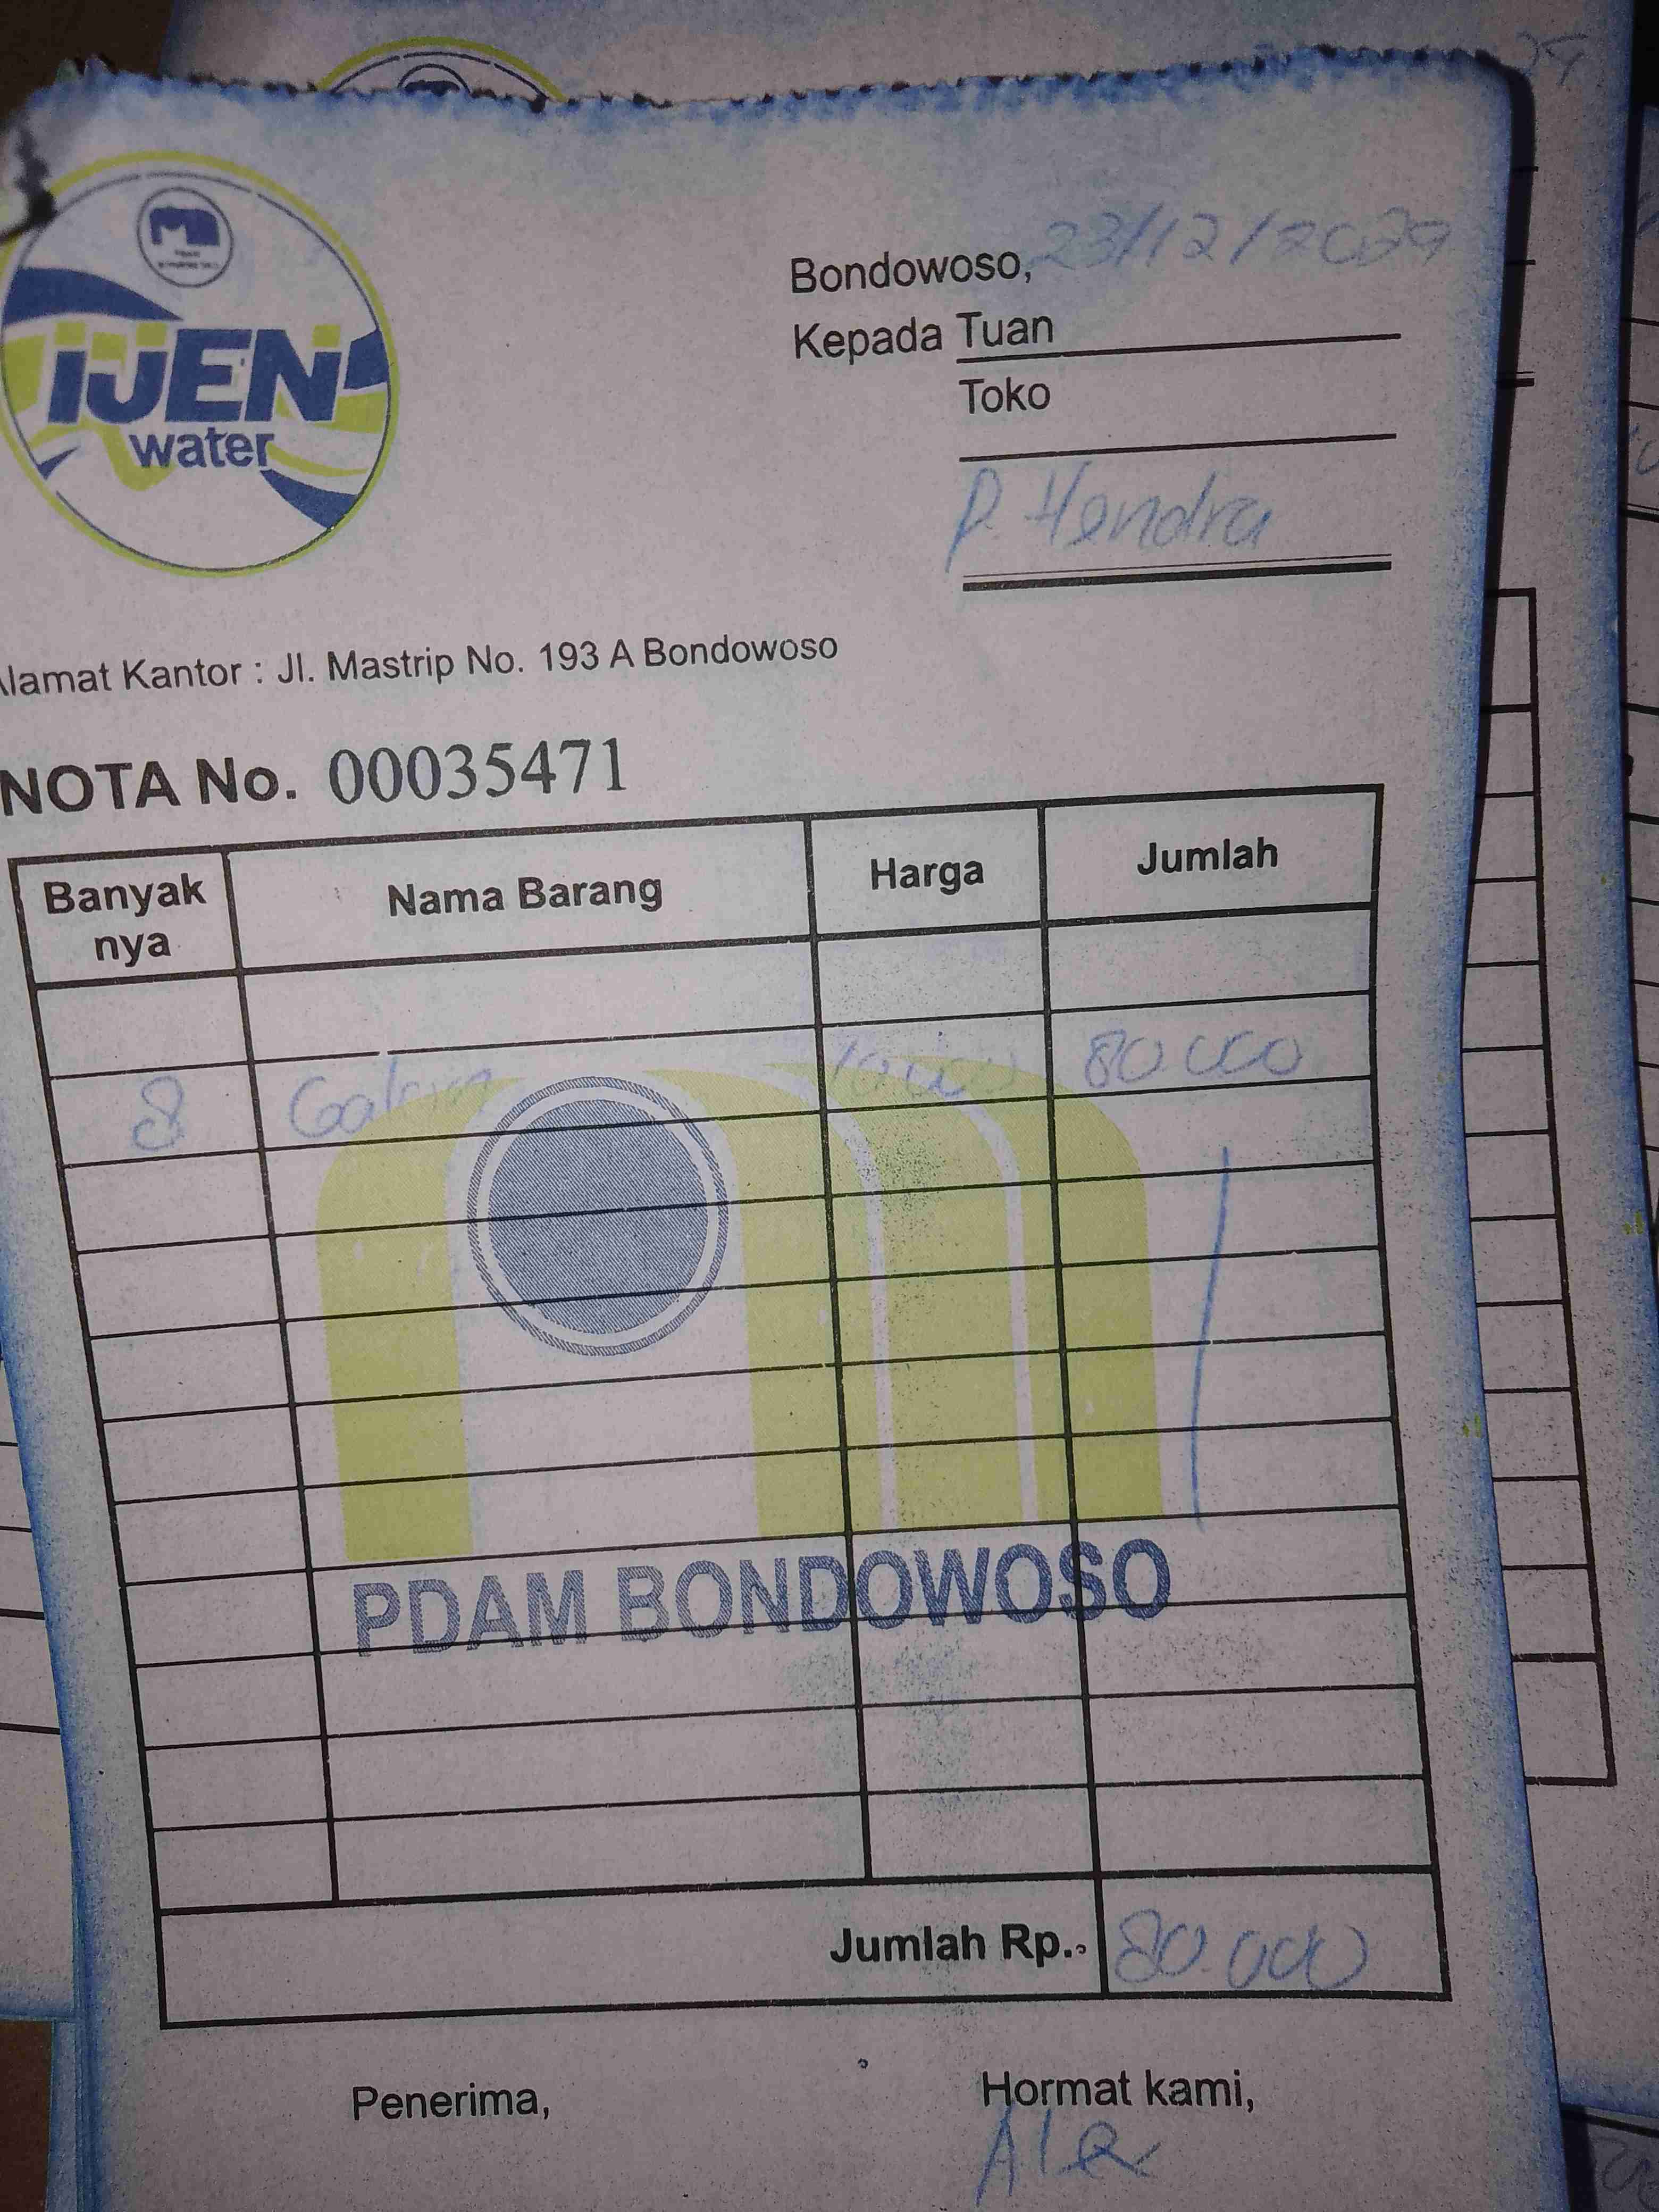 iJEN
water
Bondowoso, 23/12/2029
Kepada Tuan
Toko
P. Hendra
lamat Kantor : Jl. Mastrip No. 193 A Bondowoso
NOTA No. 00035471
Banyak nya Nama Barang Harga Jumlah
8 Galon 10.000 80.000
PDAM BONDOWOSO
Jumlah Rp. 80.000
Penerima, Hormat kami,